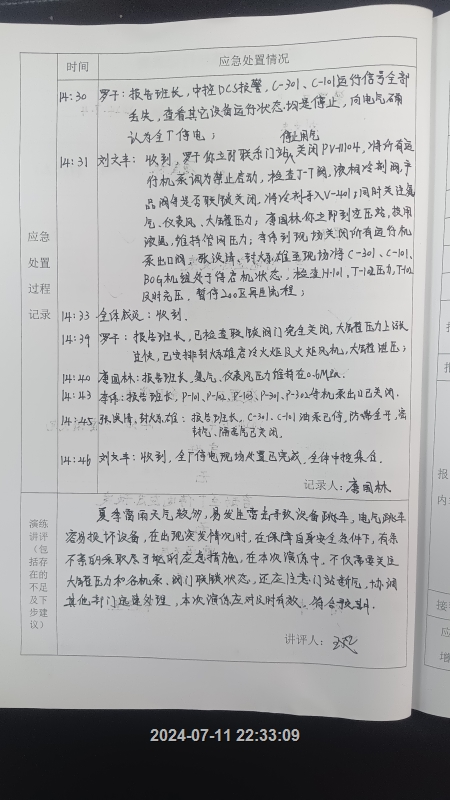 时间 应急处置情况
14:30 罗宇：报告班长，中控DCS报警，C-301、C-101运行信号全部
丢失，查看其它设备运行状态均是停止，向电气确
认为全厂停电；
停止用气
14:31 刘文丰：收到，罗宇你立即联系门站，关闭PV-11104，将所有运
行机泵调为禁止启动，检查J-T阀，液相冷剂阀，产
品阀门是否联锁关闭，将冷剂导入V-401；同时关注氮
气、仪表风、大罐压力；唐国林你立即到空压站，投用
液氮，维持管网压力；李伟到现场关闭所有运行机
泵出口阀，张洪涛、封大雄在现场将C-301、C-101、
BOG机组处于待启机状态，检查H-101、T-102压力，T-102
及时充压，暂停200区再生流程；
应急
处置
过程
记录
14:33 全体成员：收到.
14:39 罗宇：报告班长，已检查联锁阀门完全关闭，大罐压力上涨
14:40 唐国林：报告班长，氮气、仪表风压力维持在0.6Mpa.
14:43 李伟：报告班长，P-101、P-102、P-103、P-301、P-302待机泵出口已关闭.
14:45 报告班长，C-301、C-101油泵已停，防喘全开，密
封气、隔离气已关闭.
14:46 刘文丰：收到，全厂停电现场处置已完成，全体中控集合.
记录人：唐国林
演练
讲评
（包
括存
在的
不足
及下
步建
议）
夏季雷雨天气较多，易发生雷击导致设备跳车，电气跳车
容易损坏设备，在出现突发情况时，在保障自身安全条件下，有条
不紊的采取尽可能的应急措施，在本次演练中，不仅需要关注
大罐压力和各机泵、阀门联锁状态，还应注意门站断气，协调
其他部门迅速处理，本次演练应对及时有效，符合预期.
讲评人：
报
内
接
应
增
2024-07-11 22:33:09